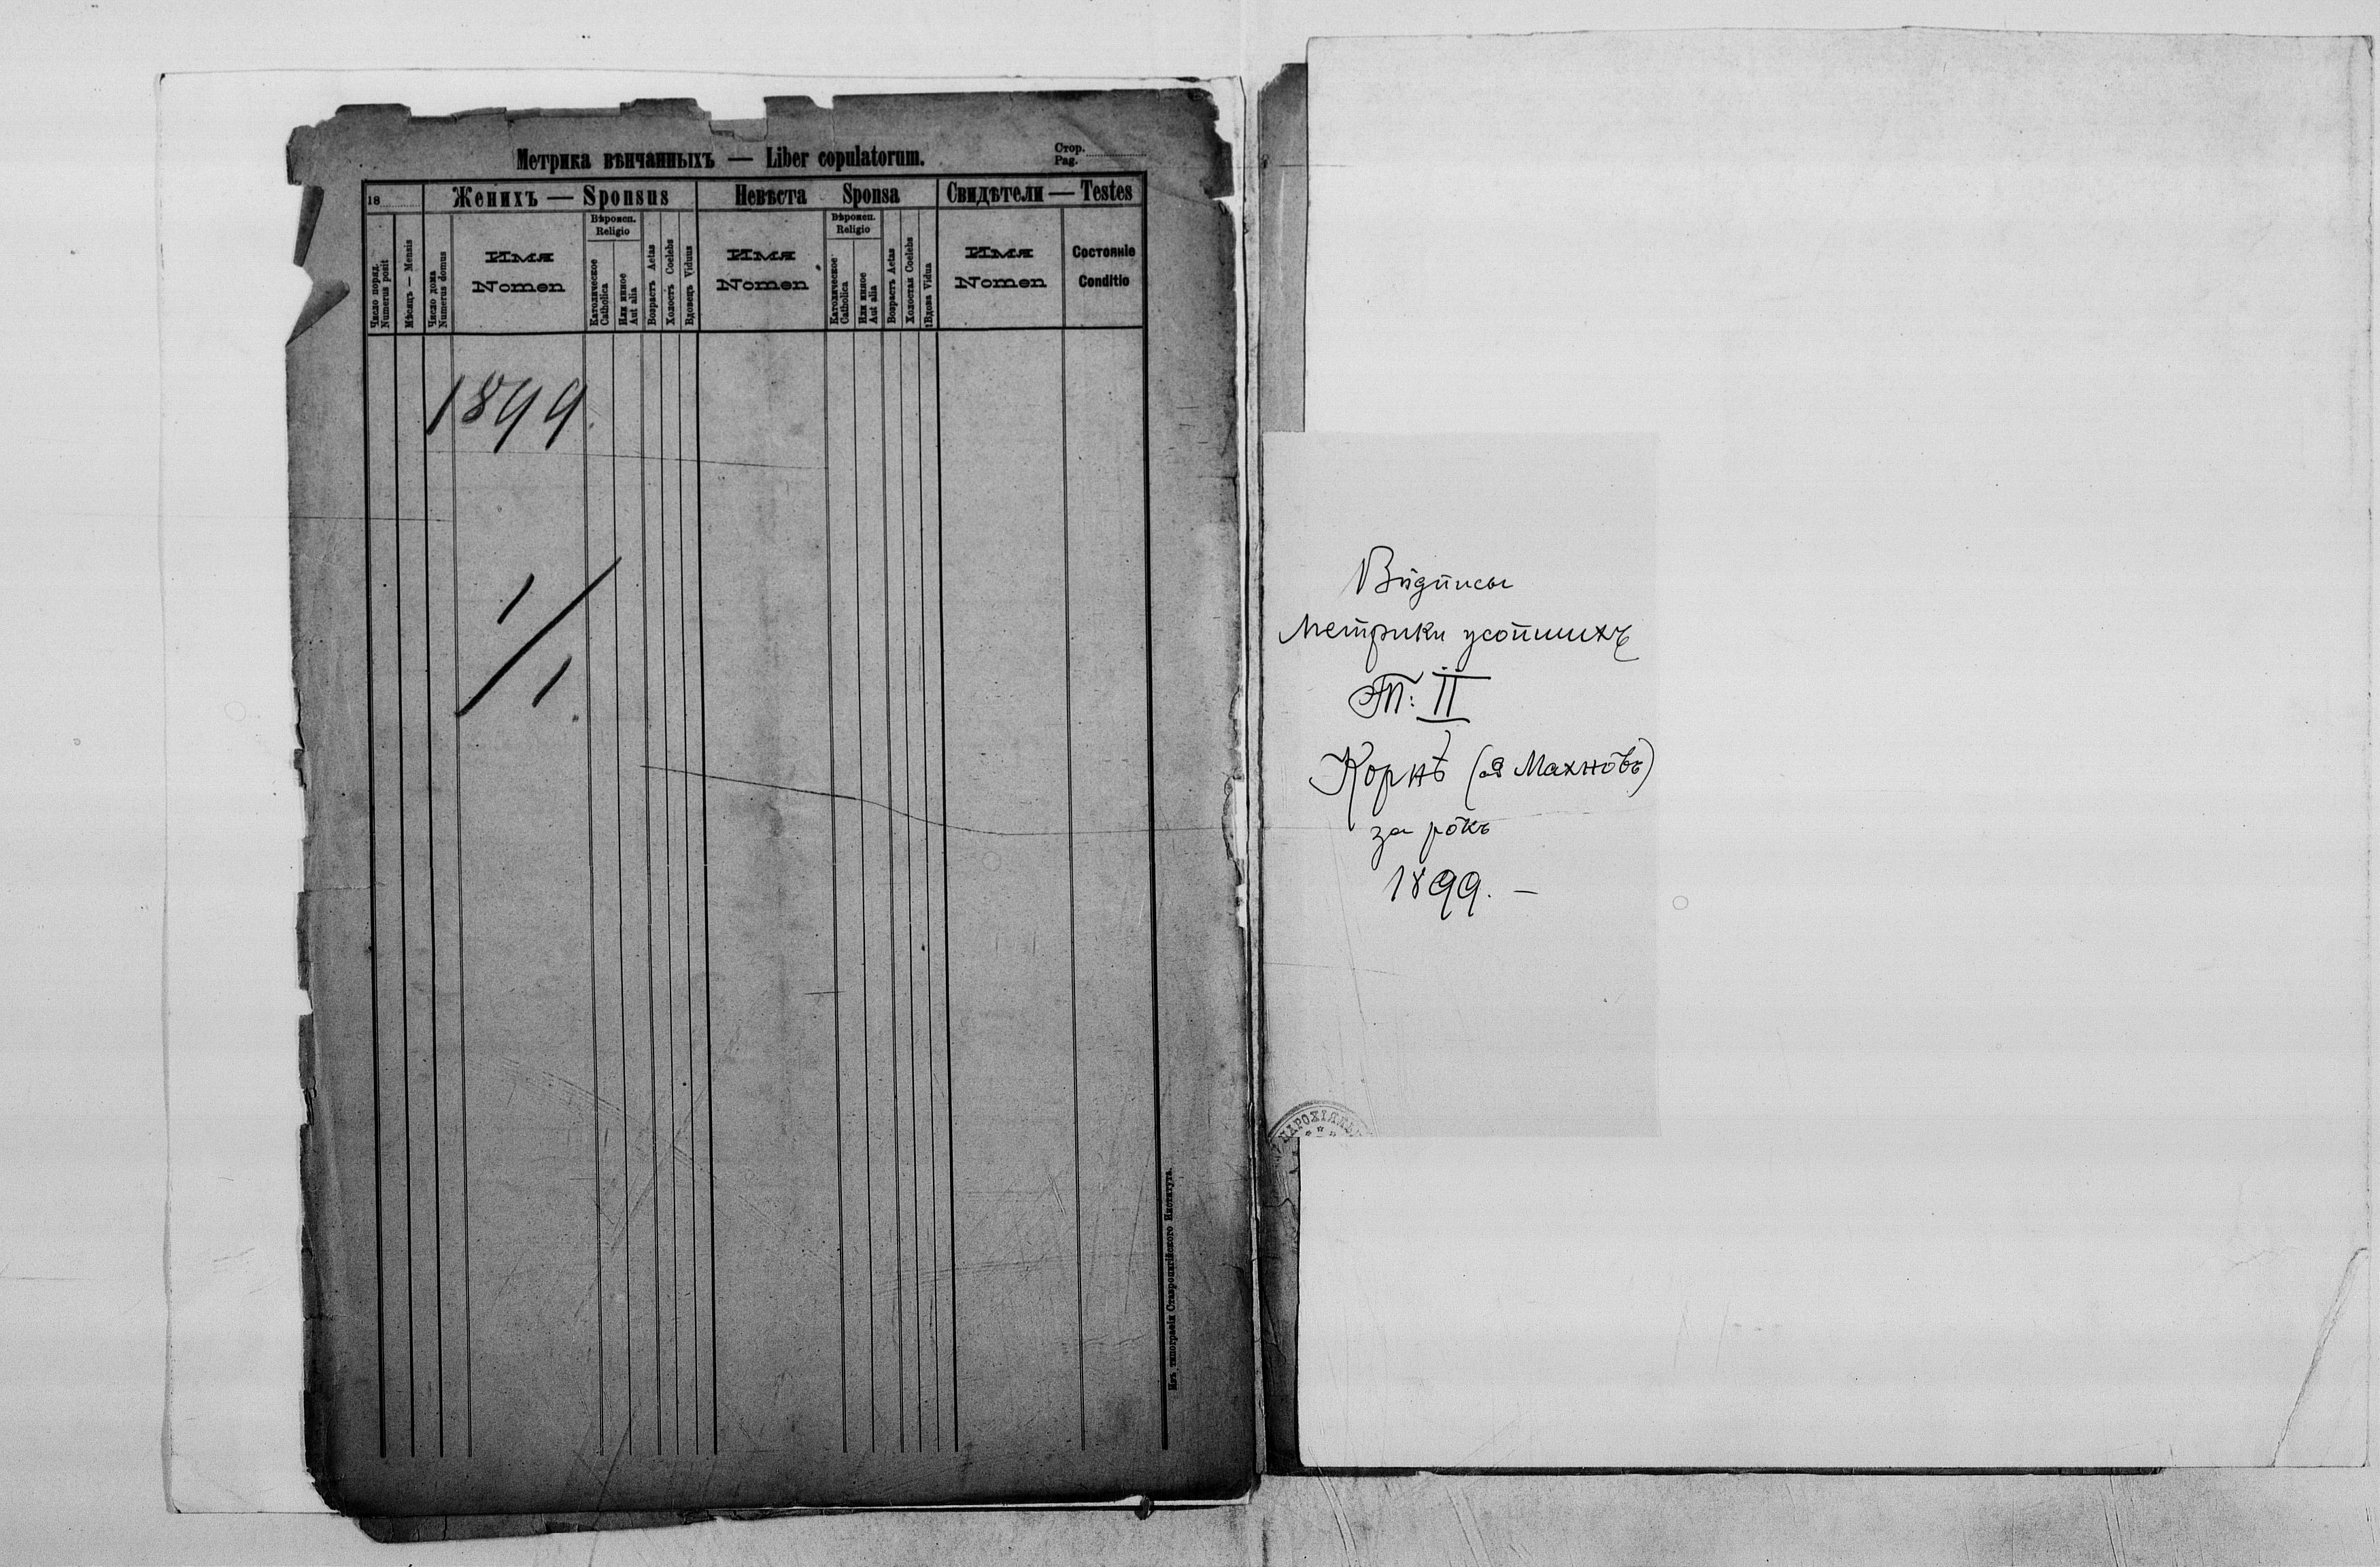 Метрика вѣнчанныхъ — Liber copulatorum.
Стор.
Pag.
18
Женихъ — Sponsus
Невѣста Sponsa
Свидѣтели — Testes
Число поряд.
Numerus posit
Мѣсяцъ — Mensis
Число дома
Numerus domus
Имя
Nomen
Вѣроисп.
Religio
Католическое
Catholica
Или иное
Aut alia
Возрастъ Aetas
Холостъ Coelebs
Вдовецъ Viduus
Имя
Nomen
Вѣроисп.
Religio
Католическое
Catholica
Или иное
Aut alia
Возрастъ Aetas
Холостая Coelebs
Вдова Vidua
Имя
Nomen
Состояніе
Conditio
1899.
1/1
Изъ типографіи Ставропигійского Института.
Вôдписы
Метрики усопшихъ
Т: II
Корнѣ (ад Махнôвъ)
за рôкъ
1899. —
ПАРОХІЯЛЬ